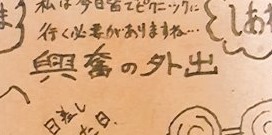 私は今日皆でピクニックに
行く必要がありますね…
しあ
ま
興奮の外出
日差し